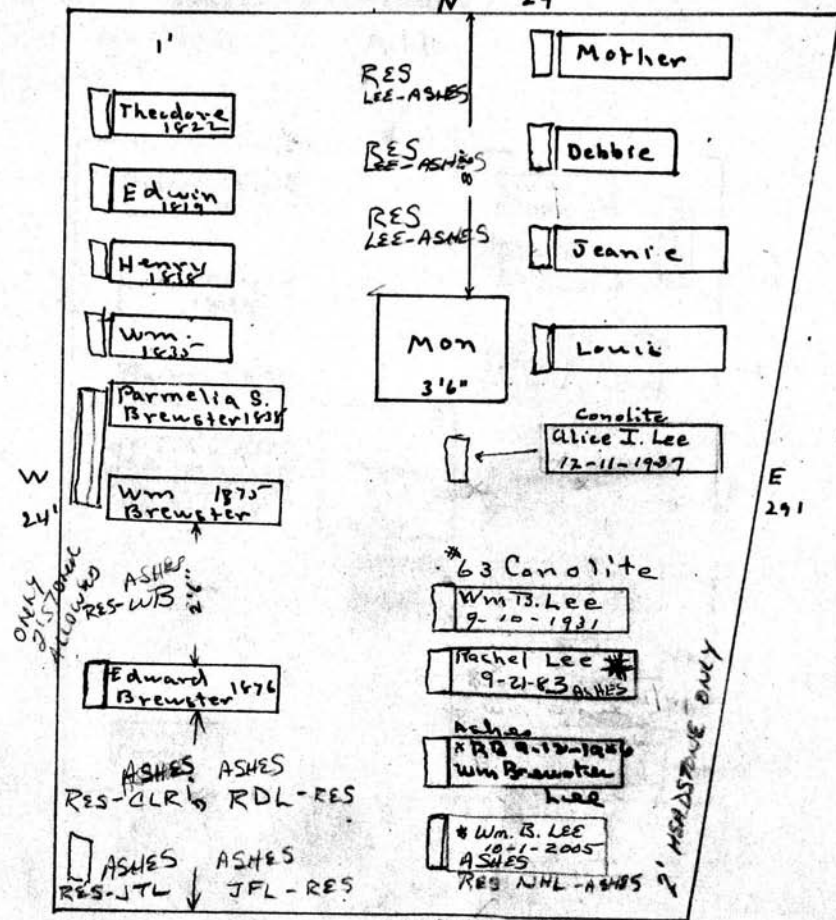 N 29
1'
Theodore
1822
Edwin
1819
Henry
1838
Wm.
1835
Parmelia S.
Brewster 1838
Wm 1875
Brewster
W
24'
ONLY
2' STONE
ALLOWED
ASHES
RES-WB
2'6"
Edward
Brewster 1876
ASHES ASHES
RES-CLR RDL-RES
ASHES ASHES
RES-JTL JFL-RES
RES
LEE-ASHES
RES
LEE-ASHES
8
RES
LEE-ASHES
Mon
3'6"
Mother
Debbie
Jeanie
Louis
Conolite
Alice I. Lee
12-11-1937
E
291
*63 Conolite
Wm B. Lee
9-10-1931
Rachel Lee *
9-21-83 ASHES
Ashes
Wm Brewster
Lee
* Wm. B. LEE
10-1-2005
ASHES
RES NHL-ASHES
2' HEADSTONE ONLY